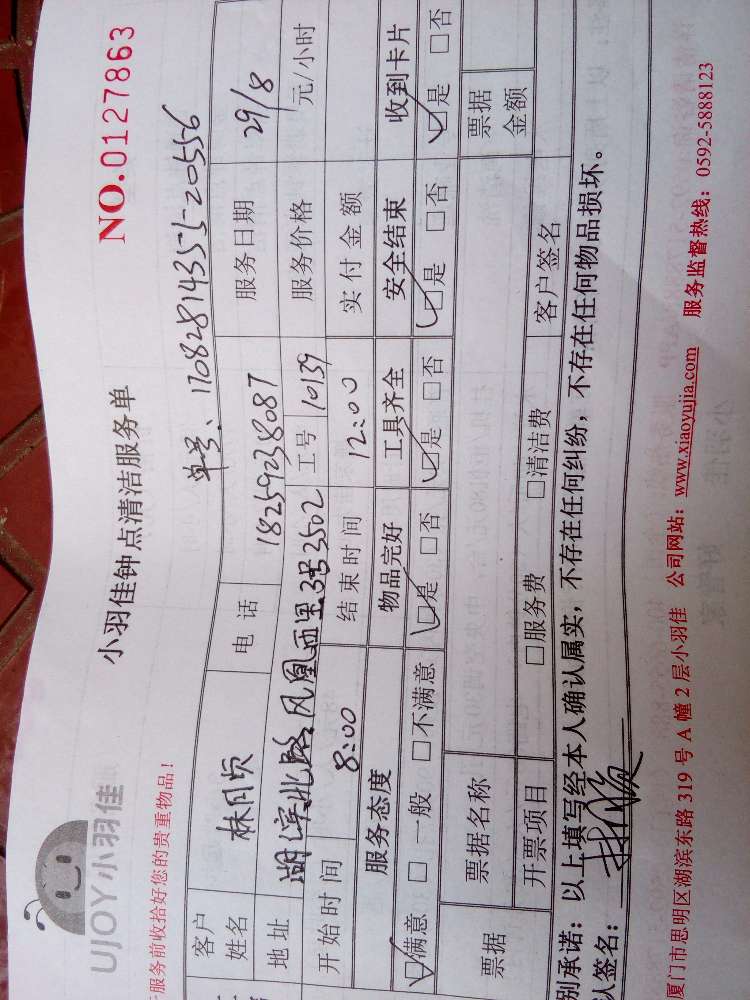 UJOY小羽佳
小羽佳钟点清洁服务单
NO.0127863
服务前收拾好您的贵重物品!
单号、1708281435520556
客户姓名 林月顷 电话 18259238087 服务日期 29/8
地址 湖滨北路凤凰西里3号3502 工号 10139 服务价格 元/小时
开始时间 8:00 结束时间 12:00 实付金额
服务态度 物品完好 工具齐全 安全结束 收到卡片
☑满意 □一般 □不满意 ☑是 □否 ☑是 □否 ☑是 □否 ☑是 □否
票据 票据名称 票据金额
开票项目 □服务费 □清洁费 客户签名
别承诺:以上填写经本人确认属实,不存在任何纠纷,不存在任何物品损坏。
认签名:
厦门市思明区湖滨东路319号A幢2层小羽佳 公司网站:www.xiaoyujia.com 服务监督热线:0592-5888123